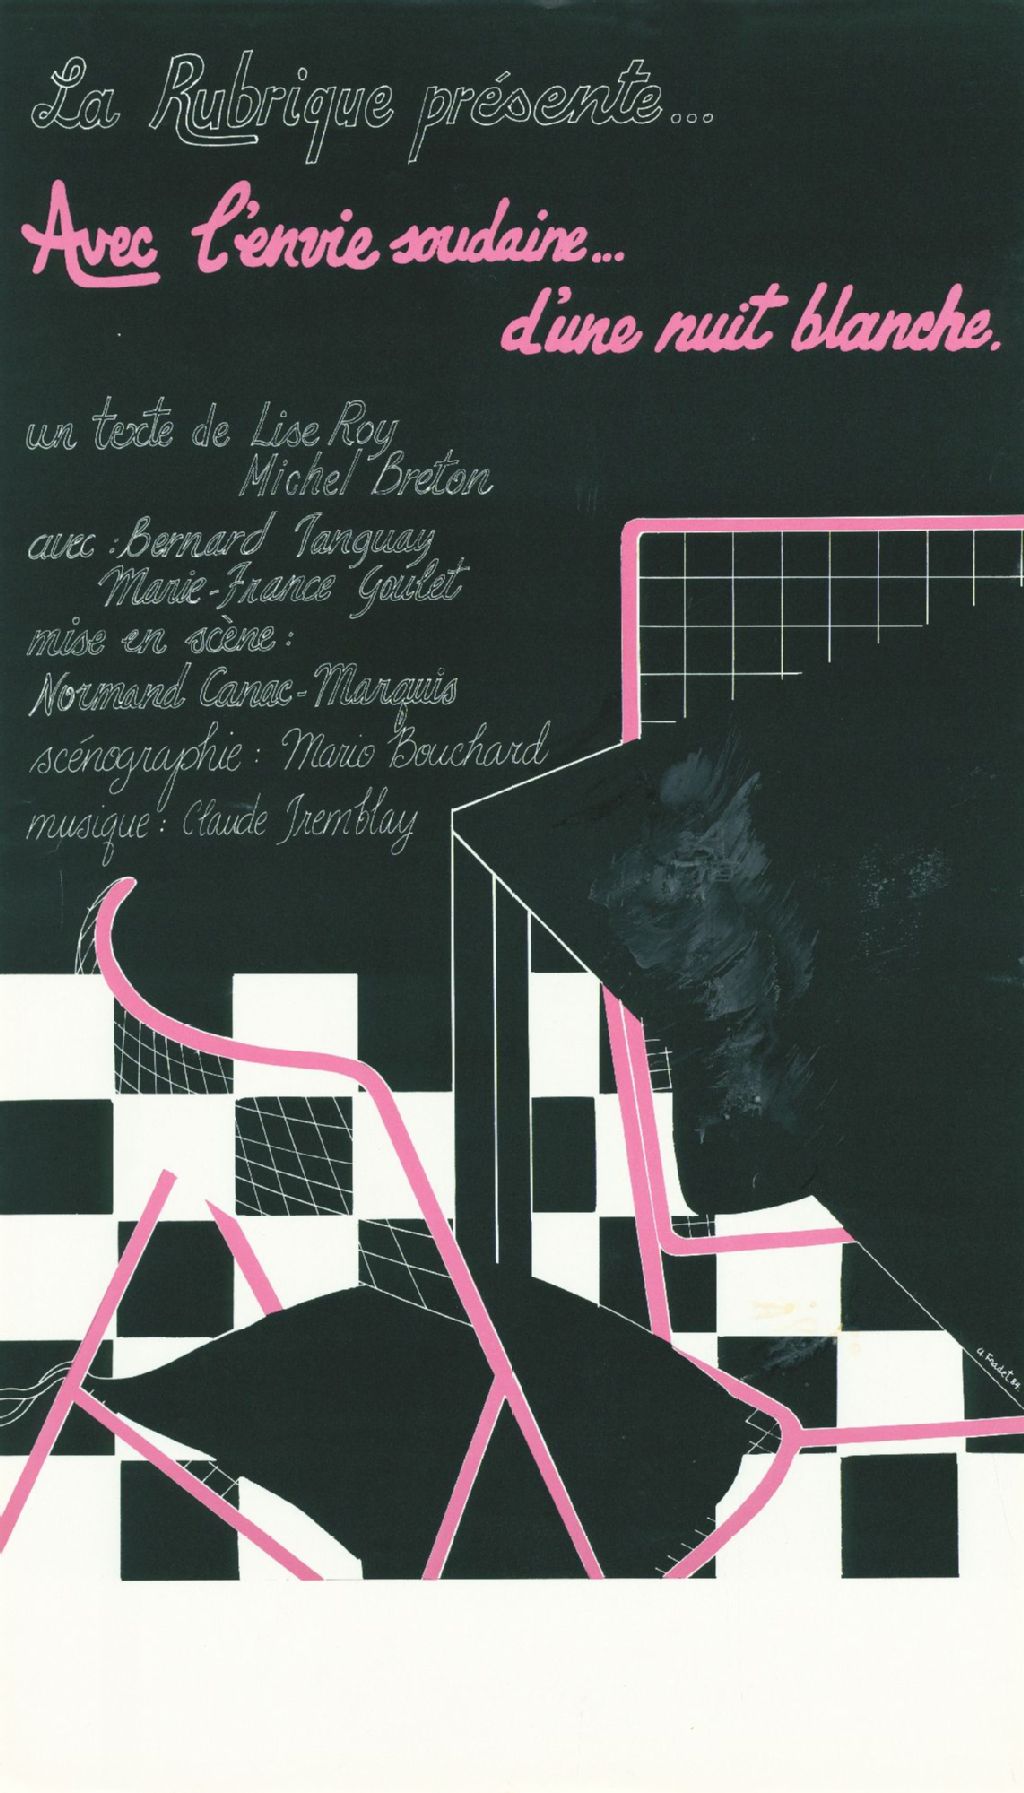 La Rubrique présente...
Avec l'envie soudaine...
d'une nuit blanche.
un texte de Lise Roy
Michel Breton
avec : Bernard Tanguay
Marie-France Goulet
mise en scène :
Normand Canac-Marquis
scénographie : Mario Bouchard
musique : Claude Tremblay
Fradet 84